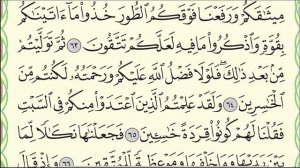 مِيثَٰقَكُمْ وَرَفَعْنَا فَوْقَكُمُ ٱلطُّورَ خُذُوا۟ مَآ ءَاتَيْنَٰكُم
بِقُوَّةٍ وَٱذْكُرُوا۟ مَا فِيهِ لَعَلَّكُمْ تَتَّقُونَ ٦٣ ثُمَّ تَوَلَّيْتُم
مِّنۢ بَعْدِ ذَٰلِكَ ۖ فَلَوْلَا فَضْلُ ٱللَّهِ عَلَيْكُمْ وَرَحْمَتُهُۥ لَكُنتُم مِّنَ
ٱلْخَٰسِرِينَ ٦٤ وَلَقَدْ عَلِمْتُمُ ٱلَّذِينَ ٱعْتَدَوْا۟ مِنكُمْ فِى ٱلسَّبْتِ
فَقُلْنَا لَهُمْ كُونُوا۟ قِرَدَةً خَٰسِـِٔينَ ٦٥ فَجَعَلْنَٰهَا نَكَٰلًا لِّمَا
بَيْنَ يَدَيْهَا وَمَا خَلْفَهَا وَمَوْعِظَةً لِّلْمُتَّقِينَ ٦٦ وَإِذْ قَالَ